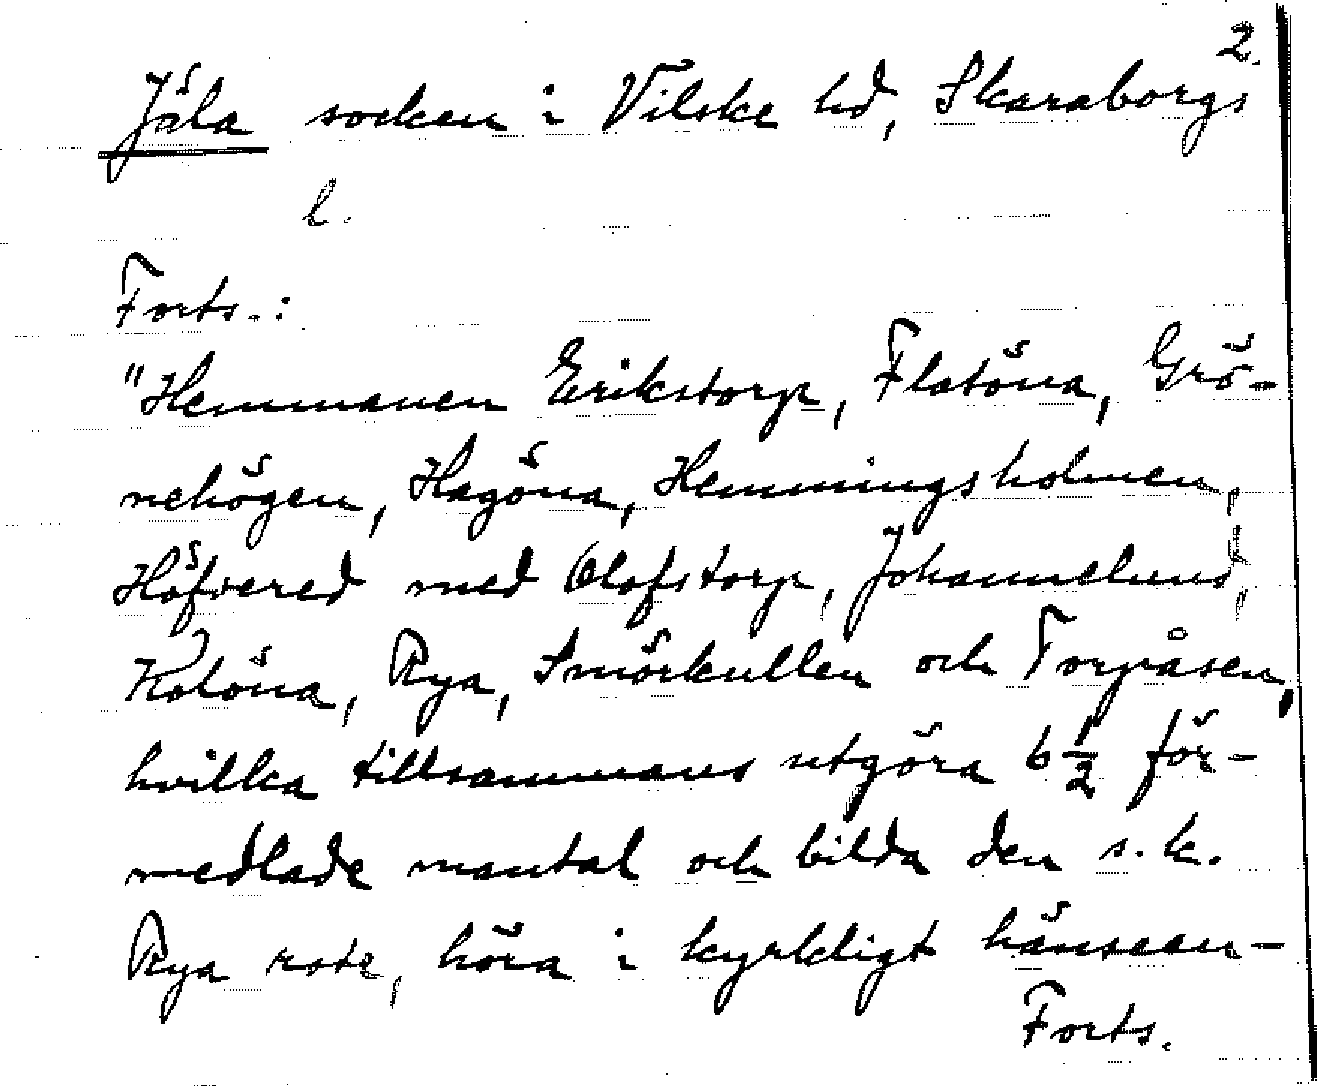 2.
Jäla socken i Vilske hd, Skaraborgs
l.
Forts.:
"Hemmanen Erikstorp, Flatöna, Grö-
nehögen, Hagöna, Hemmingsholmen,
Höfvered med Olofstorp, Johannelund,
Kolöna, Rya, Smörkullen och Torpåsen,
hvilka tillsammans utgöra 6 1/2 för-
medlade mantal och bilda den s.k.
Rya rote, höra i kyrkligt hänseen-
Forts.